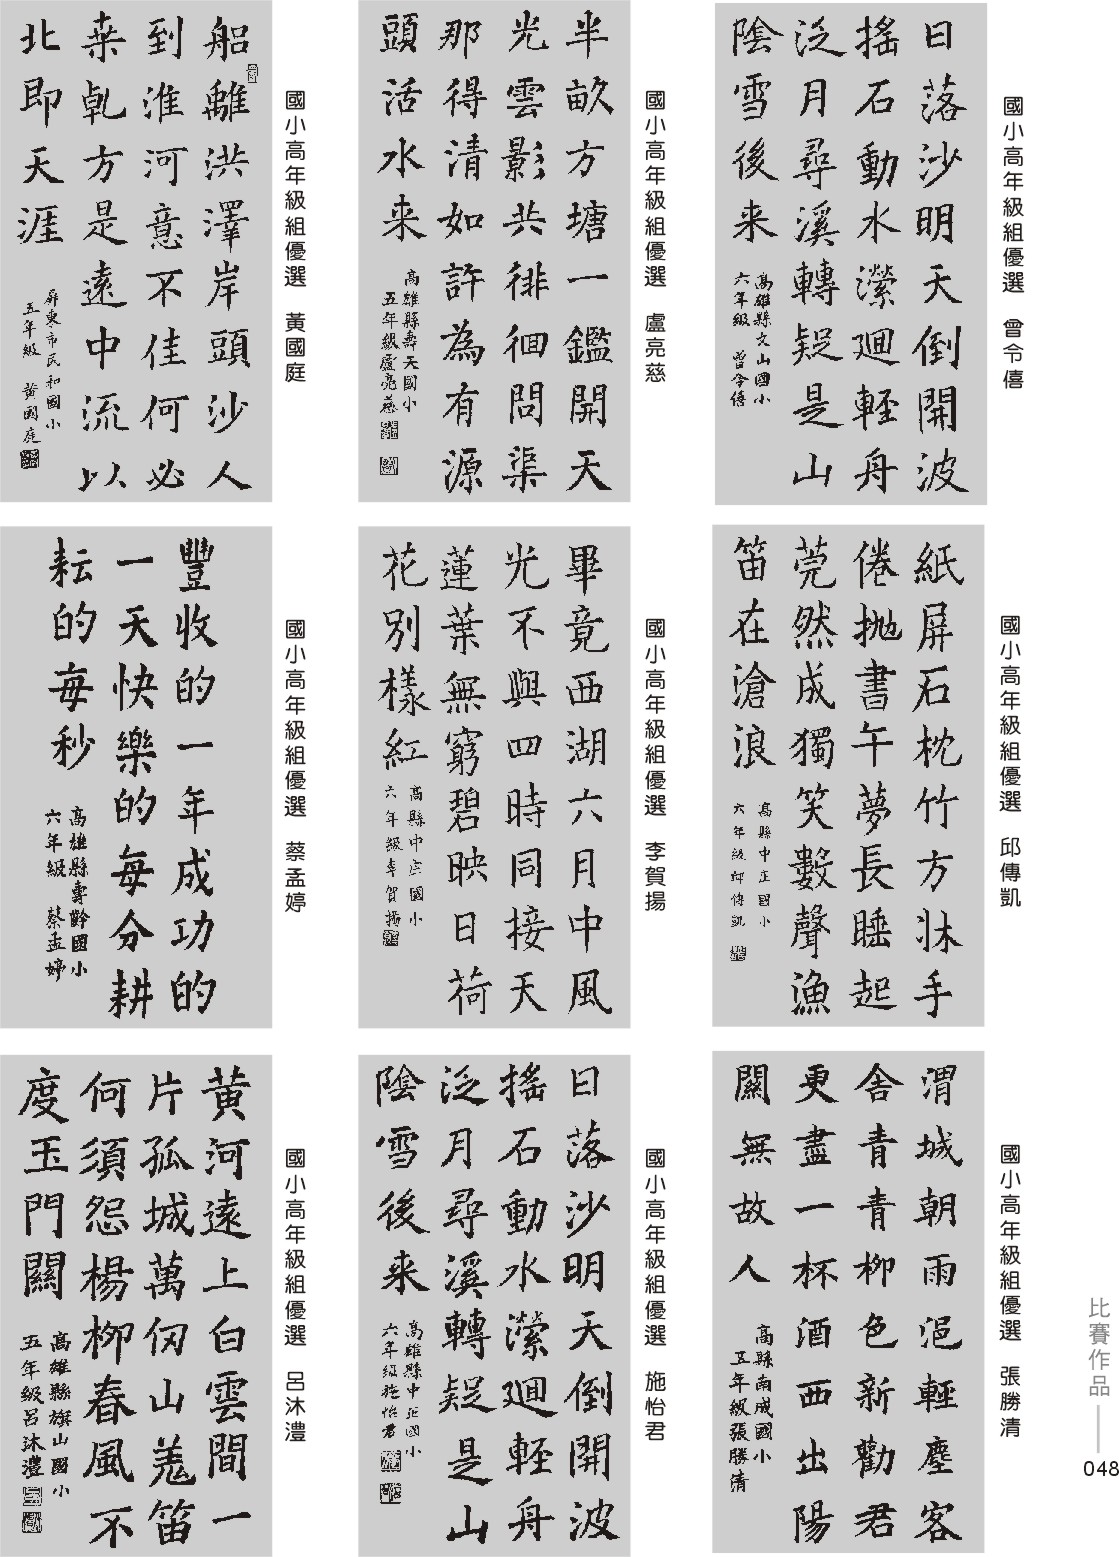 國小高年級組優選　曾令僖
日落沙明天倒開波
搖石動水瀠迴輕舟
泛月尋溪轉疑是山
陰雪後来
高雄縣文山國小
六年級 曾令僖
國小高年級組優選　盧亮慈
半畝方塘一鑑開天
光雲影共徘徊問渠
那得清如許為有源
頭活水来
高雄縣壽天國小
五年級盧亮慈
國小高年級組優選　黃國庭
船離洪澤岸頭沙人
到淮河意不佳何必
桒乹方是遠中流以
北即天涯
屏東市民和國小
五年級 黃國庭
國小高年級組優選　邱傳凱
紙屏石枕竹方牀手
倦拋書午夢長睡起
莞然成獨笑數聲漁
笛在滄浪
高縣中正國小
六年級邱傳凱
國小高年級組優選　李賀揚
畢竟西湖六月中風
光不與四時同接天
蓮葉無窮碧映日荷
花別樣紅
高縣中庄國小
六年級李賀揚
國小高年級組優選　蔡孟婷
豐收的一年成功的
一天快樂的每分耕
耘的每秒
高雄縣壽齡國小
六年級 蔡孟婷
國小高年級組優選　張勝清
渭城朝雨浥輕塵客
舍青青柳色新勸君
更盡一杯酒西出陽
關無故人
高縣南成國小
五年級張勝清
國小高年級組優選　施怡君
日落沙明天倒開波
搖石動水瀠迴輕舟
泛月尋溪轉疑是山
陰雪後来
高雄縣中正國小
六年級施怡君
國小高年級組優選　呂沐澧
黃河遠上白雲間一
片孤城萬仞山羌笛
何須怨楊柳春風不
度玉門關
高雄縣旗山國小
五年級呂沐澧
比賽作品
048